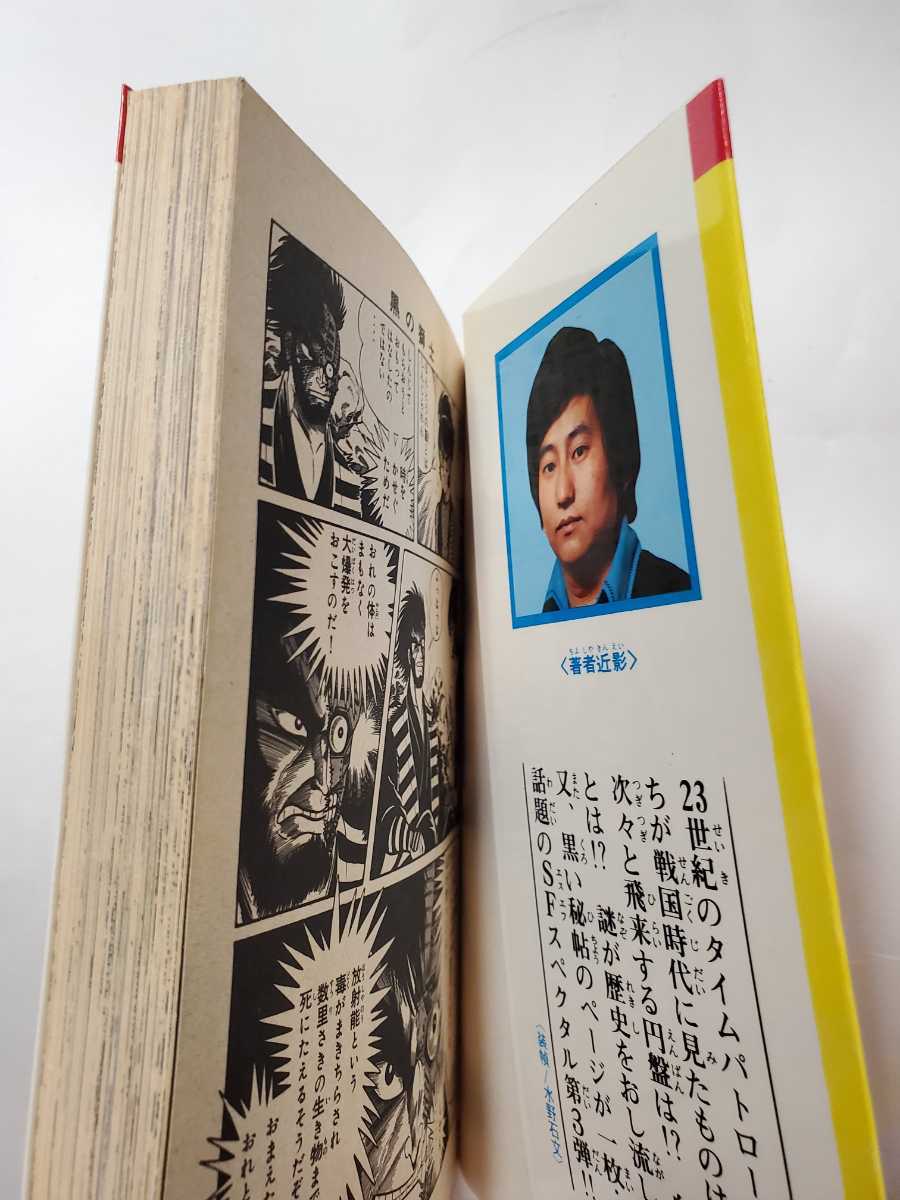 黒の獅士
しんじて
もらおうと
おもって
はなしたの
ではない
…
時を
かせぐ
ためだ
おれの体は
まもなく
大爆発を
おこすのだ!
放射能という
毒がまきちらされ
数里さきの生き物まで
死にたえるそうだぞ
おまえた
おれと
〈著者近影〉
23世紀のタイムパトロー
ちが戦国時代に見たものは
次々と飛来する円盤は!?
とは!? 謎が歴史をおし流し
又、黒い秘帖のページが一枚・
話題のSFスペクタル第3弾!!
〈装幀/水野石文〉